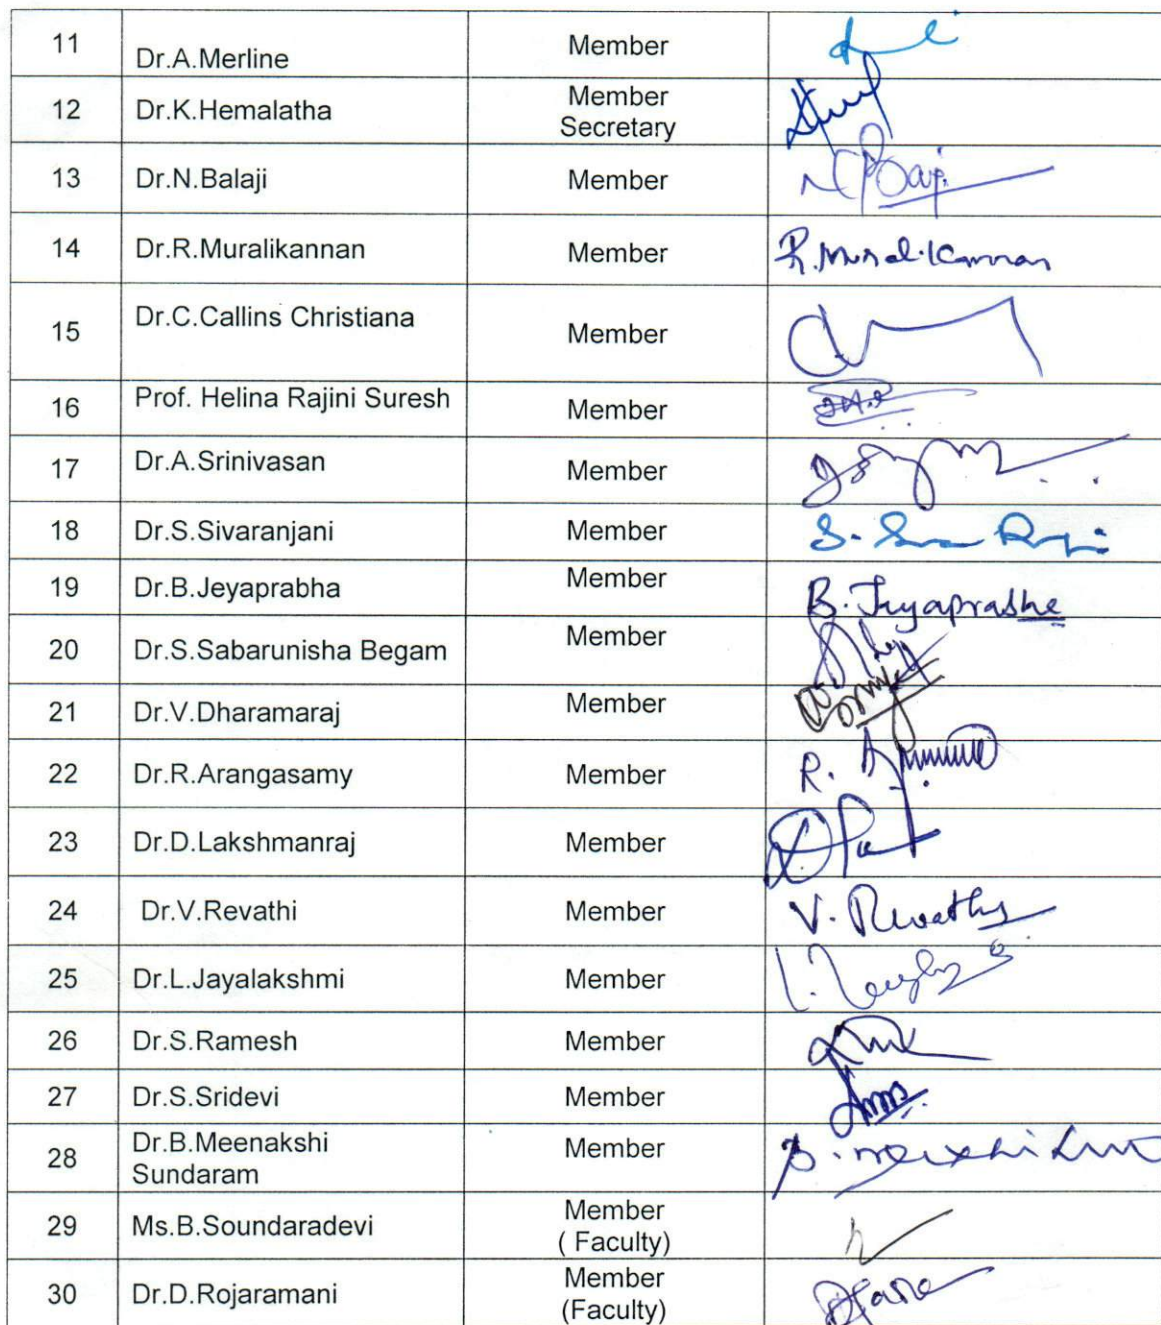 11 Dr.A.Merline Member
12 Dr.K.Hemalatha Member
Secretary
13 Dr.N.Balaji Member
14 Dr.R.Muralikannan Member R.Muralikannan
15 Dr.C.Callins Christiana Member
16 Prof. Helina Rajini Suresh Member
17 Dr.A.Srinivasan Member
18 Dr.S.Sivaranjani Member
19 Dr.B.Jeyaprabha Member
20 Dr.S.Sabarunisha Begam Member
21 Dr.V.Dharamaraj Member
22 Dr.R.Arangasamy Member
23 Dr.D.Lakshmanraj Member
24 Dr.V.Revathi Member
25 Dr.L.Jayalakshmi Member
26 Dr.S.Ramesh Member
27 Dr.S.Sridevi Member
28 Dr.B.Meenakshi Member
Sundaram
29 Ms.B.Soundaradevi Member
( Faculty)
30 Dr.D.Rojaramani Member
(Faculty)